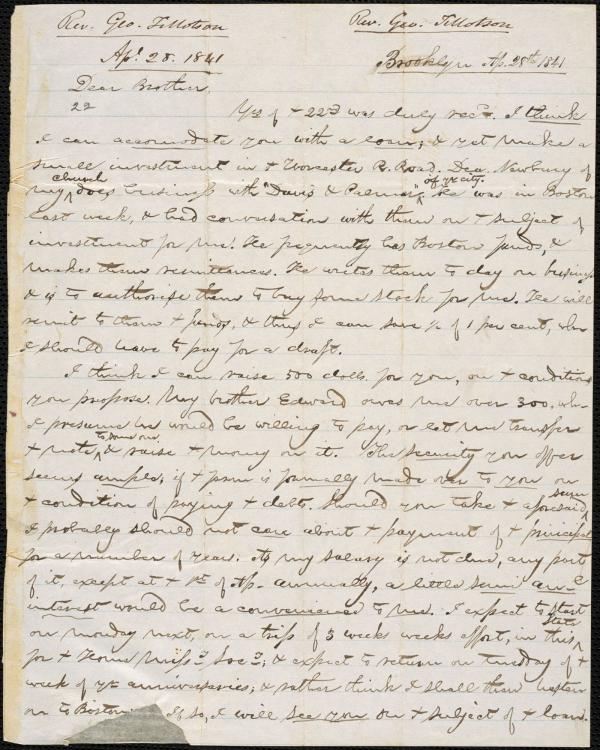 Rev. Geo. Tillotson Rev. Geo. Tillotson
Apl. 28. 1841 Brooklyn Ap. 28th 1841
Dear Brother,
22 Yrs of + 22d was duly recd. I think
I can accomodate you with a loan, & yet make a
small investment in + Worcester R. Road, Dea. Newbury of
my church does business with "Davis & Palmer" of yr city. He was in Boston
last week, & had conversation with them on + subject of
investment for me. He frequently has Boston funds, &
makes them remittances. He writes them to day on business
& is to authorise them to buy some stock for me. He will
remit to them + funds, & thus I can save ½ of 1 per cent, wh
I should have to pay for a draft.
I think I can raise 500 dolls. for you, on + conditions
you propose. My brother Edward owes me over 300, wh
I presume he would be willing to pay, or let me transfer
+ note to some one, & raise + money on it. The security you offer
seems ample; if + prem is formally made over to you on
+ condition of paying + debts. Should you take + aforesaid sum
I probably should not care about + payment of + principal
for a number of years. As my salary is not due, any part
of it, except at + 1st of Ap. annually, a little semi anl
interest would be a convenience to me. I expect to start
on monday next, on a trip of 3 weeks weeks effort, in this State
for + Home Missy Socy; & expect to return on tuesday of +
week of yr anniversaries; & rather think I shall then hasten
on to Boston. If so, I will see you on + subject of + loan.